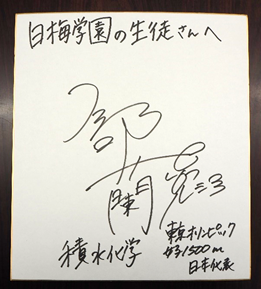 白梅学園の生徒さんへ
卜部
蘭
積水化学
東京オリンピック
女子1500m
日本代表